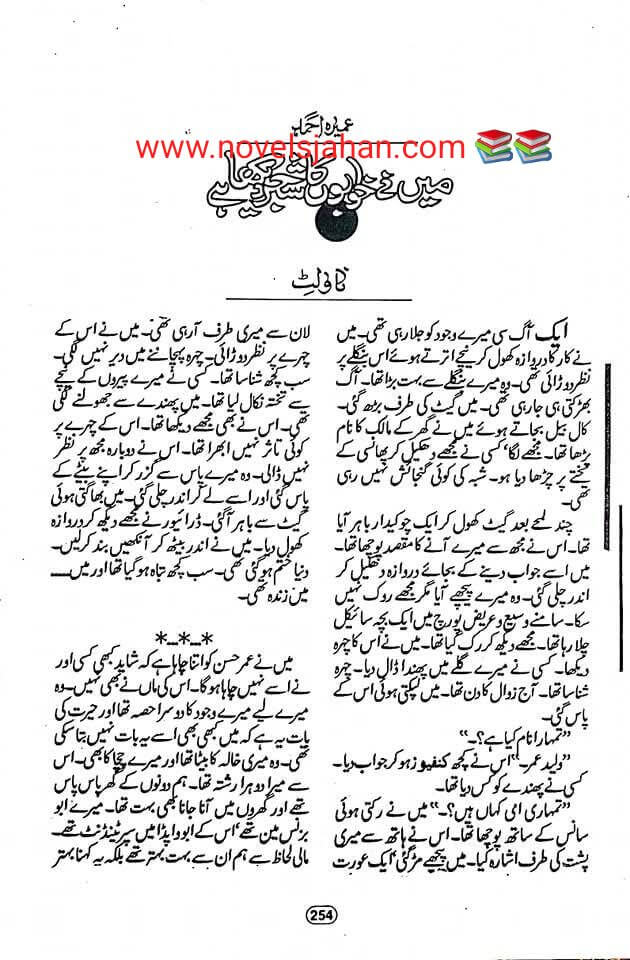 عمیرہ احمد
www.novelsjahan.com
میں نے خوابوں کا شجر دیکھا ہے
ناولٹ
ایک آگ سی میرے وجود کو جلا رہی تھی۔ میں
نے کار کا دروازہ کھول کر نیچے اترتے ہوئے اس بنگلے پر
نظر دوڑائی تھی۔ وہ میرے بنگلے سے بہت بڑا تھا۔ آگ
بھڑکتی ہی جا رہی تھی۔ میں گیٹ کی طرف بڑھ گئی۔
کال بیل بجاتے ہوئے میں نے گھر کے مالک کا نام
پڑھا تھا۔ مجھے لگا' کسی نے مجھے دھکیل کر پھانسی کے
تختے پر چڑھا دیا ہو۔ شبہ کی کوئی گنجائش نہیں رہی
تھی۔
چند لمحے بعد گیٹ کھول کر ایک چوکیدار باہر آیا
تھا۔ اس نے مجھ سے میرے آنے کا مقصد پوچھا تھا۔
میں اسے جواب دینے کے بجائے دروازہ دھکیل کر
اندر چلی گئی۔ وہ میرے پیچھے آیا مگر مجھے روک نہیں
سکا۔ سامنے وسیع و عریض پورچ میں ایک بچہ سائیکل
چلا رہا تھا۔ مجھے دیکھ کر رک گیا تھا۔ میں نے اس کا چہرہ
دیکھا۔ کسی نے میرے گلے میں پھندا ڈال دیا۔ چہرہ
شناسا تھا۔ آج زوال کا دن تھا۔ میں لپکتی ہوئی اس کے
پاس گئی۔
”تمہارا نام کیا ہے؟۔“
”ولید عمر۔“ اس نے کچھ کنفیوز ہو کر جواب دیا۔
کسی نے پھندے کو کس دیا تھا۔
”تمہاری امی کہاں ہیں؟۔“ میں نے رکتی ہوئی
سانس کے ساتھ پوچھا تھا۔ اس نے ہاتھ سے میری
پشت کی طرف اشارہ کیا۔ میں پیچھے مڑ گئی' ایک عورت
لان سے میری طرف آ رہی تھی۔ میں نے اس کے
چہرے پر نظر دوڑائی۔ چہرہ پہچاننے میں دیر نہیں لگی۔
سب کچھ شناسا تھا۔ کسی نے میرے پیروں کے نیچے
سے تختہ نکال لیا تھا۔ میں پھندے سے جھولنے لگی
تھی۔ اس نے بھی مجھے دیکھا تھا۔ اس کے چہرے پر
کوئی تاثر نہیں ابھرا تھا۔ اس نے دوبارہ مجھ پر نظر
نہیں ڈالی۔ وہ میرے پاس سے گزر کر اپنے بیٹے کے
پاس گئی اور اسے لے کر اندر چلی گئی۔ میں بھاگتی ہوئی
گیٹ سے باہر آ گئی۔ ڈرائیور نے مجھے دیکھ کر دروازہ
کھول دیا۔ میں نے اندر بیٹھ کر آنکھیں بند کر لیں۔
دنیا ختم ہو گئی تھی۔ سب کچھ تباہ ہو گیا تھا اور میں ۔۔۔
میں زندہ تھی۔
*-*-*
میں نے عمر حسن کو اتنا چاہا ہے کہ شاید کبھی کسی اور
نے اسے نہیں چاہا ہو گا۔ اس کی ماں نے بھی نہیں۔ وہ
میرے لیے میرے وجود کا دوسرا حصہ تھا اور حیرت کی
بات یہ ہے کہ میں کبھی بھی اسے یہ بات نہیں بتا سکی
تھی۔ وہ میری خالہ کا بیٹا تھا اور میرے چچا کا بھی۔ اس
سے میرا دوہرا رشتہ تھا۔ ہم دونوں کے گھر پاس پاس
تھے اور گھروں میں آنا جانا بھی بہت تھا۔ میرے ابو
بزنس مین تھے' اس کے ابو واپڈا میں سپرنٹینڈنٹ تھے۔
مالی لحاظ سے ہم ان سے بہت بہتر تھے بلکہ یہ کہنا بہتر
254